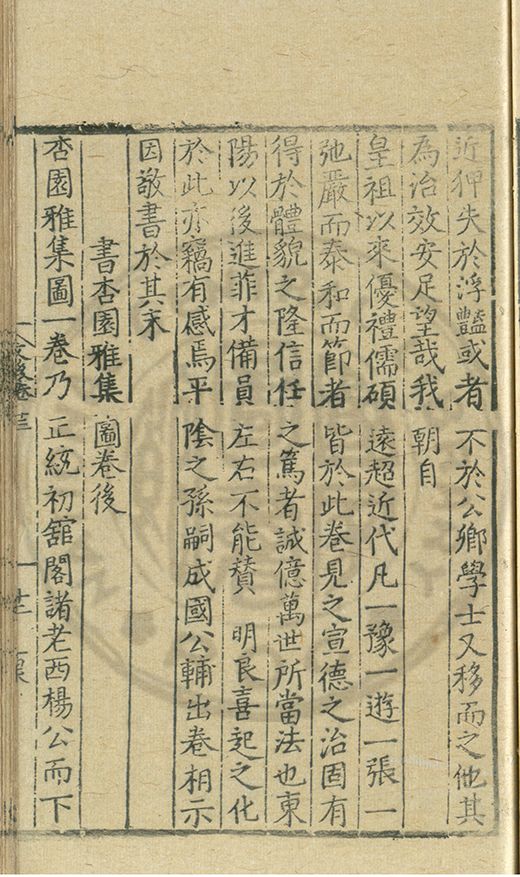 近狎失於浮豔或者不於公鄉學士又移而之他其
為治效安足望哉我朝自
皇祖以來優禮儒碩遠超近代凡一豫一遊一張一
弛嚴而泰和而節者皆於此卷見之宣德之治固有
得於體貌之隆信任之篤者誠億萬世所當法也東
陽以後進菲才備員左右不能贊 明良喜起之化
於此亦竊有感焉平陰之孫嗣成國公輔出卷相示
因敬書於其末
書杏園雅集圖卷後
杏園雅集圖一卷乃正統初舘閣諸老西楊公而下